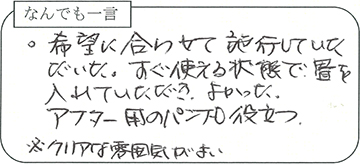 なんでも一言
。希望に合わせて施行していた
だいた。すぐ使える状態で畳を
入れていただき、よかった。
アフター用のパンフも役立つ。
※クリアな雰囲気がよい